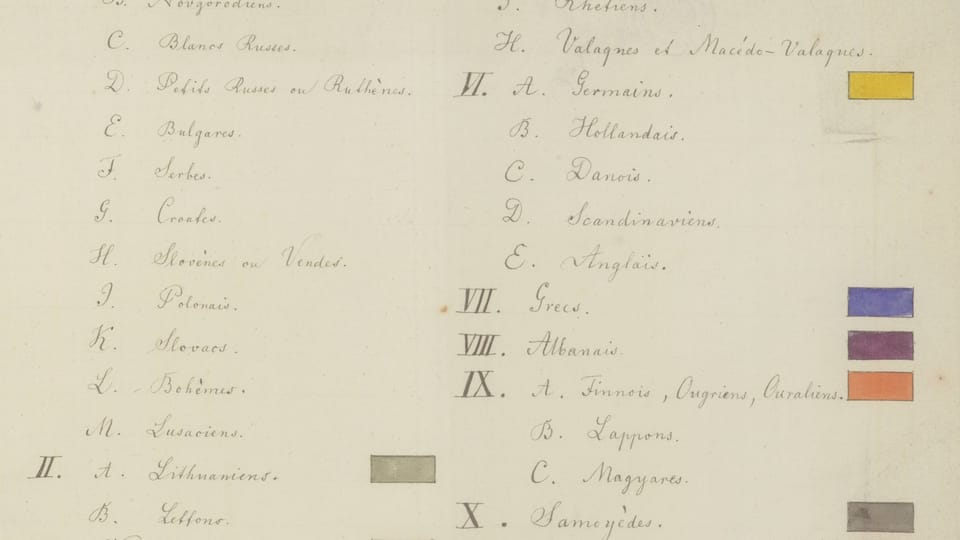 B. Novgorodiens.
C. Blancs Russes.
D. Petits Russes ou Ruthènes.
E. Bulgares.
F. Serbes.
G. Croates.
H. Slovènes ou Vendes.
J. Polonais.
K. Slovacs.
L. Bohêmes.
M. Lusaciens.
II. A. Lithuaniens.
B. Lettons.
J. Rhétiens.
H. Valaques et Macédo-Valaques.
VI. A. Germains.
B. Hollandais.
C. Danois.
D. Scandinaviens.
E. Anglais.
VII. Grecs.
VIII. Albanais.
IX. A. Finnois, Ougriens, Ouraliens.
B. Lappons.
C. Magyares.
X. Samoyèdes.